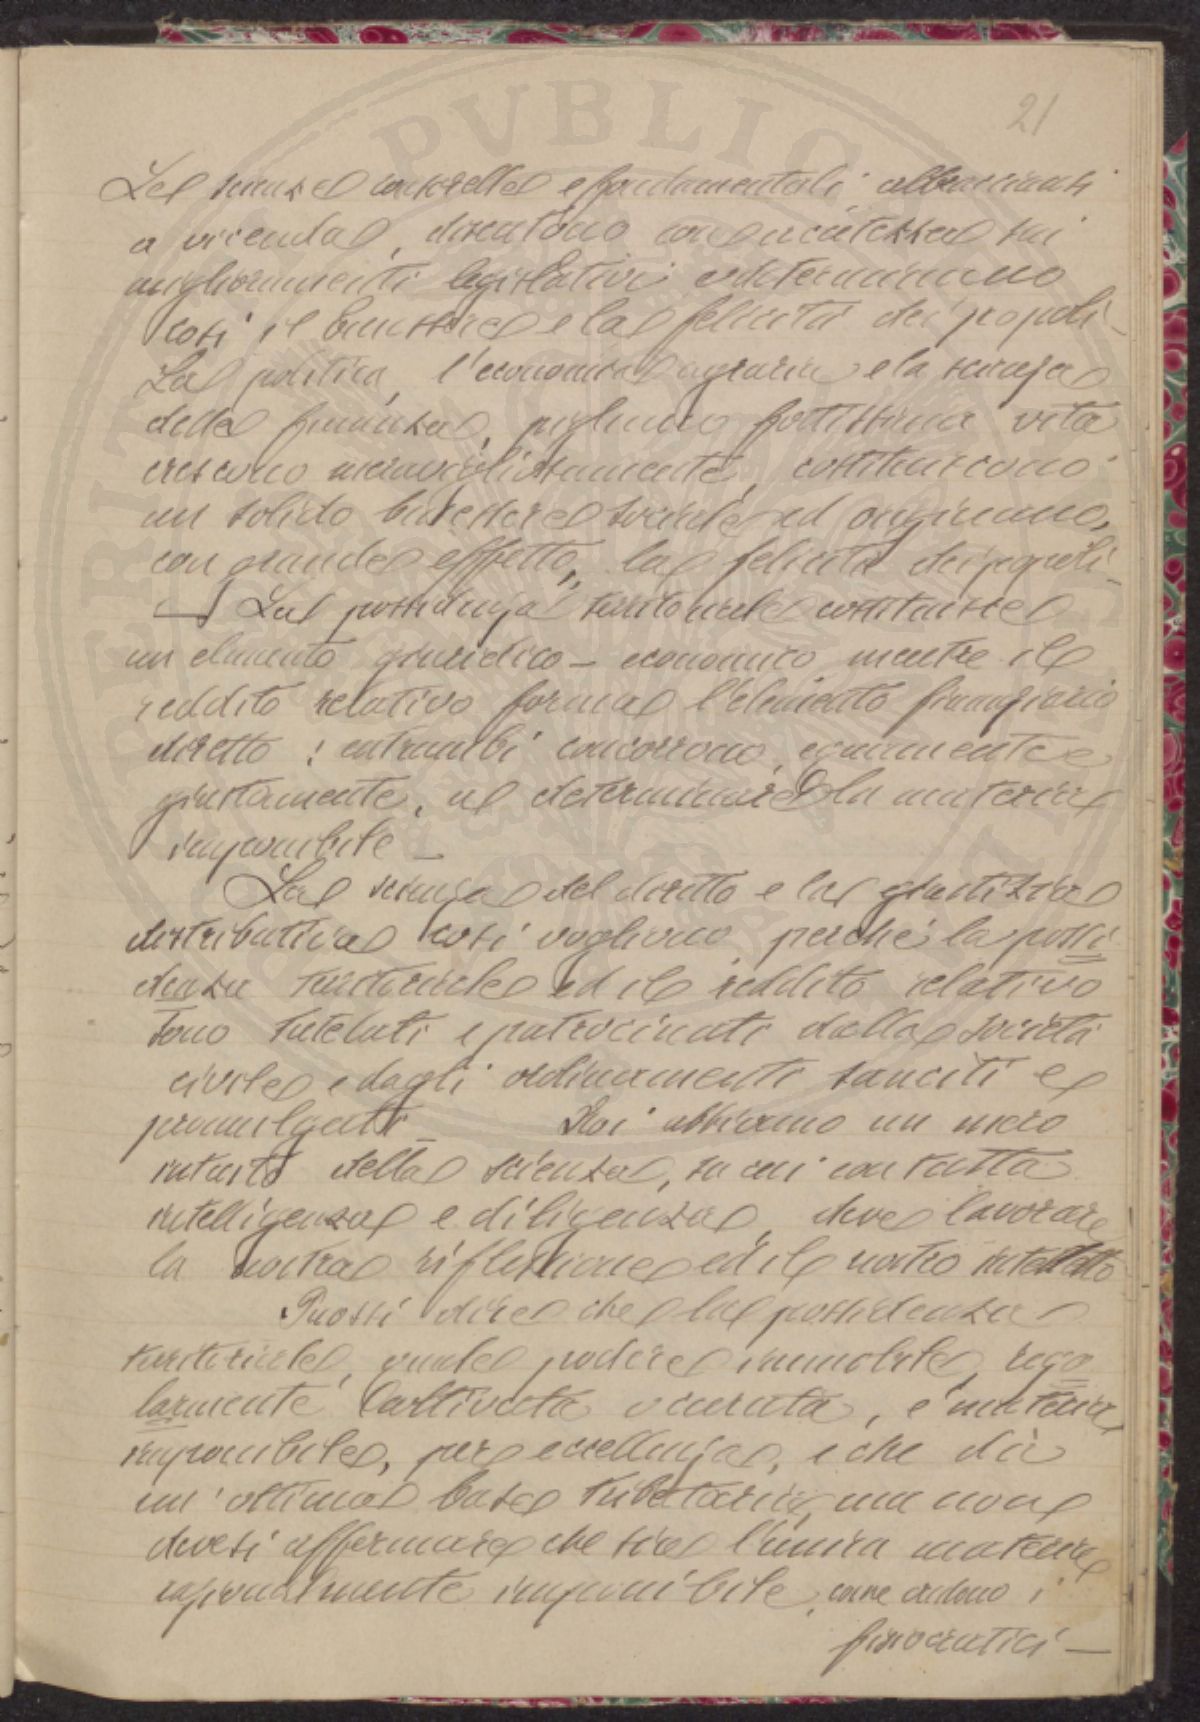 21
Le scienze consorelle e fondamentali, abbracciansi
a vicenda, discutono con accortezza sui
miglioramenti legislativi e determinano
così il benessere e la felicità dei popoli –
La politica, l'economia agraria e la scienza
della finanza, pigliano fortissima vita
crescono meravigliosamente, costituiscono
un solido benessere sociale ed originano,
con grande effetto, la felicità dei popoli –
La possidenza territoriale costituisce
un elemento giuridico – economico mentre il
reddito relativo forma l'elemento finanziario
diretto : entrambi concorrono, equamente e
giustamente, a determinare la materia
imponibile –
La scienza del diritto e la giustizia
distributiva così vogliono, perché la possi
denza territoriale ed il reddito relativo
sono tutelati e patrocinati dalla società
civile e dagli ordinamenti sanciti e
promulgati – Noi abbiamo un mero
intuito della scienza, su cui con tutta
intelligenza e diligenza, deve lavorare
la nostra riflessione ed il nostro intelletto
Puossi dire che la possidenza
territoriale, quale podere immobile, rego
larmente coltivata e curata, è materia
imponibile, per eccellenza, e che dia
un'ottima base tributaria, ma non
devesi affermare che sia l'unica materia
razionalmente imponibile, come credono i
fisiocratici –